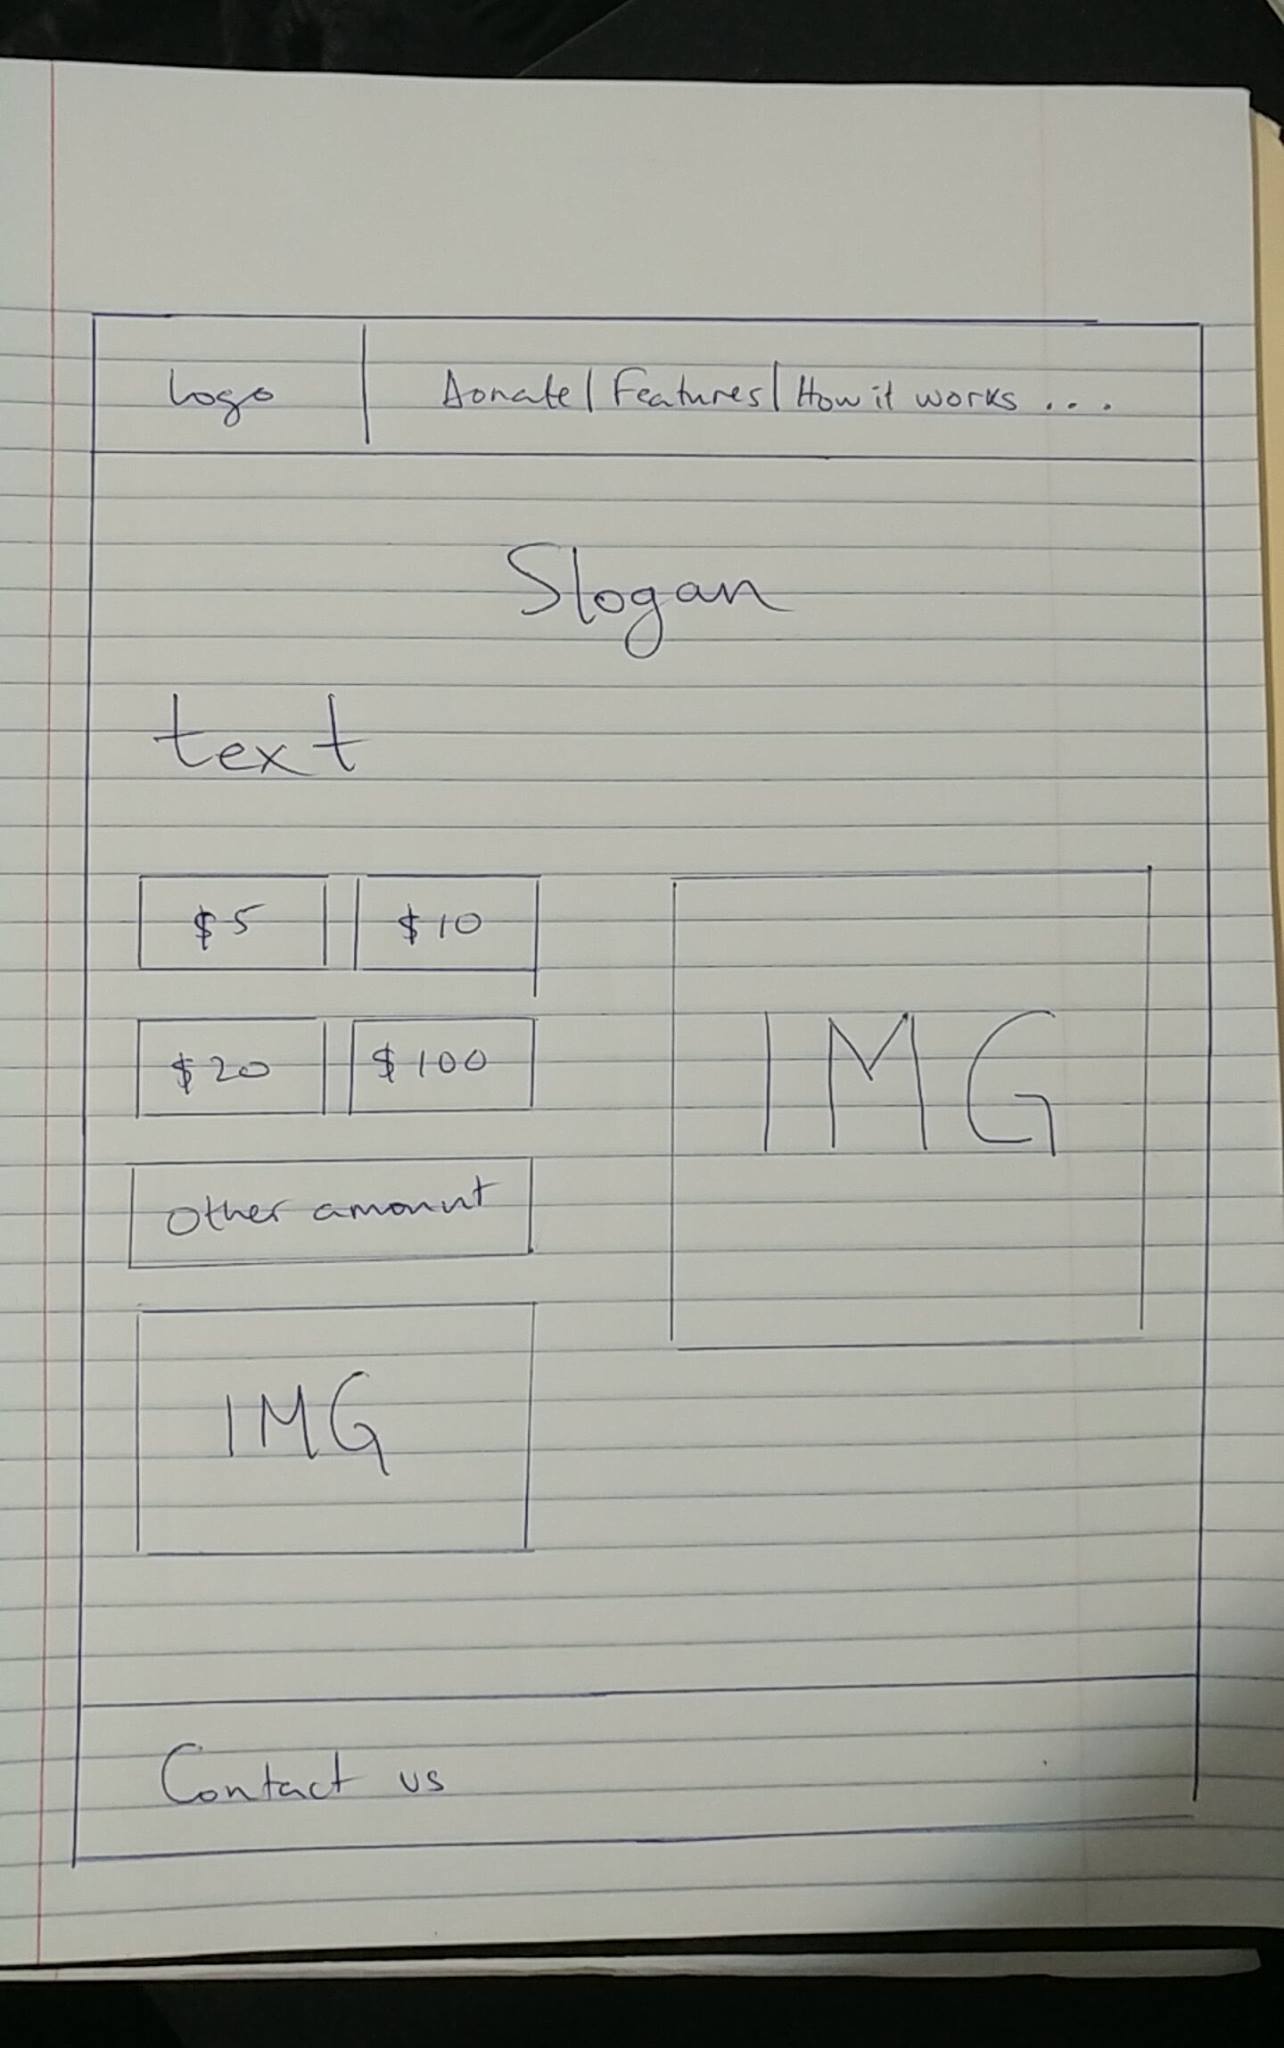 Logo | Donate | Features | How it works ...
Slogan
text
$5 $10
$20 $100
Other amount
IMG
IMG
Contact us